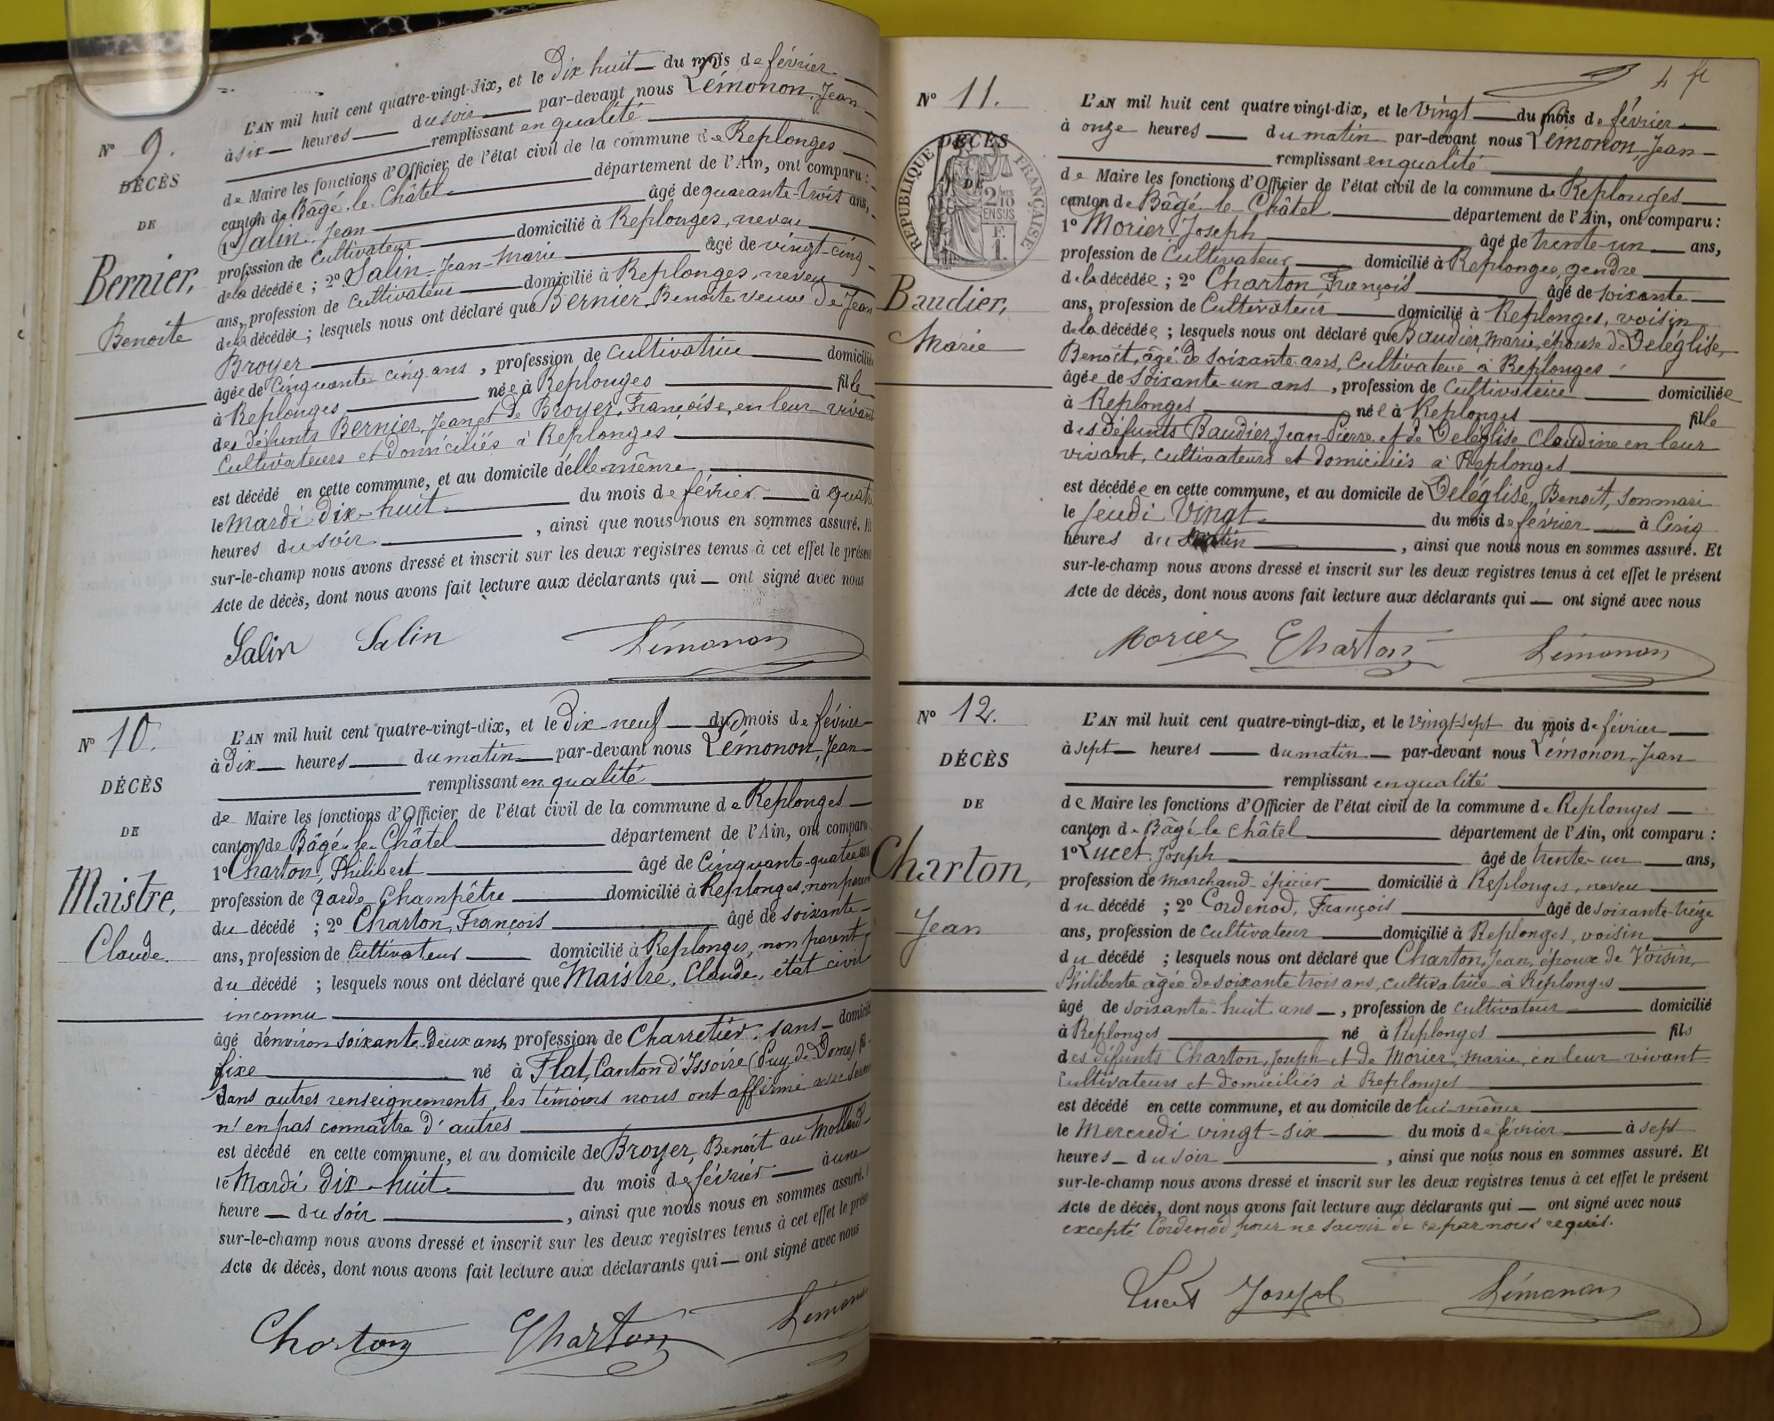 N° 9.
DÉCÈS
DE
Bernier,
Benoite
L'AN mil huit cent quatre-vingt-dix, et le Dix huit du mois de février
à six heures du soir par-devant nous Lémonon, Jean
remplissant en qualité
de Maire les fonctions d'Officier de l'état civil de la commune de Replonges
canton de Bâgé-le-Châtel département de l'Ain, ont comparu :
1° Salin, Jean âgé de quarante-trois ans,
profession de Cultivateur domicilié à Replonges, neveu
de la décédée ; 2° Salin, Jean-Marie âgé de vingt-cinq
ans, profession de Cultivateur domicilié à Replonges, neveu
de la décédée ; lesquels nous ont déclaré que Bernier Benoite veuve de Jean
Broyer
âgée de Cinquante cinq ans, profession de Cultivatrice domiciliée
à Replonges née à Replonges fille
des défunts Bernier, Jean et de Broyer, Françoise, en leur vivant
Cultivateurs et domiciliés à Replonges
est décédé en cette commune, et au domicile d'elle-même
le Mardi dix-huit du mois de février à quatre
heures du soir, ainsi que nous nous en sommes assuré. Et
sur-le-champ nous avons dressé et inscrit sur les deux registres tenus à cet effet le présent
Acte de décès, dont nous avons fait lecture aux déclarants qui ont signé avec nous
Salin Salin Lémonon
N° 10.
DÉCÈS
DE
Maistre,
Claude
L'AN mil huit cent quatre-vingt-dix, et le Dix-neuf du mois de février
à Dix heures du matin par-devant nous Lémonon, Jean
remplissant en qualité
de Maire les fonctions d'Officier de l'état civil de la commune de Replonges
canton de Bâgé-le-Châtel département de l'Ain, ont comparu
1° Charton, Philibert âgé de Cinquante-quatre ans
profession de garde Champêtre domicilié à Replonges, non parent
du décédé ; 2° Charton, François âgé de soixante
ans, profession de Cultivateur domicilié à Replonges, non parent
du décédé ; lesquels nous ont déclaré que Maistre, Claude, état civil
inconnu
âgé d'environ soixante-Deux ans, profession de Charretier, sans domicile
fixe né à Flat, Canton d'Issoire (Puy-de-Dôme)
Sans autres renseignements, les témoins nous ont affirmé
n'en pas connaître d'autres
est décédé en cette commune, et au domicile de Broyer, Benoît au Mollard
le Mardi dix-huit du mois de février à une
heure du soir, ainsi que nous nous en sommes assuré.
sur-le-champ nous avons dressé et inscrit sur les deux registres tenus à cet effet le présent
Acte de décès, dont nous avons fait lecture aux déclarants qui ont signé avec nous
Charton Charton Lémonon
4
N° 11.
DÉCÈS
DE
RÉPUBLIQUE FRANÇAISE
Baudier,
Marie
L'AN mil huit cent quatre vingt-dix, et le Vingt du mois de février
à onze heures du matin par-devant nous Lémonon, Jean
remplissant en qualité
de Maire les fonctions d'Officier de l'état civil de la commune de Replonges
canton de Bâgé-le-Châtel département de l'Ain, ont comparu :
1° Morier Joseph âgé de trente-un ans,
profession de Cultivateur domicilié à Replonges, gendre
de la décédée ; 2° Charton François âgé de soixante
ans, profession de Cultivateur domicilié à Replonges, voisin
de la décédée ; lesquels nous ont déclaré que Baudier, Marie, épouse de Deléglise,
Benoît, âgé de soixante ans, Cultivateur à Replonges
âgée de soixante-un ans, profession de Cultivatrice domiciliée
à Replonges née à Replonges fille
des défunts Baudier, Jean-Pierre et de Deléglise Claudine en leur
vivant, cultivateurs et domiciliés à Replonges
est décédée en cette commune, et au domicile de Deléglise, Benoît, son mari
le Jeudi Vingt du mois de février à Cinq
heures du matin, ainsi que nous nous en sommes assuré. Et
sur-le-champ nous avons dressé et inscrit sur les deux registres tenus à cet effet le présent
Acte de décès, dont nous avons fait lecture aux déclarants qui ont signé avec nous
Morier Charton Lémonon
N° 12.
DÉCÈS
DE
Charton,
Jean
L'AN mil huit cent quatre-vingt-dix, et le vingt-sept du mois de février
à sept heures du matin par-devant nous Lémonon, Jean
remplissant en qualité
de Maire les fonctions d'Officier de l'état civil de la commune de Replonges
canton de Bâgé-le-Châtel département de l'Ain, ont comparu :
1° Lucet, Joseph âgé de trente-un ans,
profession de marchand-épicier domicilié à Replonges, neveu
du décédé ; 2° Cordenod, François âgé de soixante-treize
ans, profession de cultivateur domicilié à Replonges, voisin
du décédé ; lesquels nous ont déclaré que Charton, Jean, époux de Voisin,
Philiberte âgée de soixante trois ans, cultivatrice à Replonges
âgé de soixante-huit ans, profession de cultivateur domicilié
à Replonges né à Replonges fils
des défunts Charton, Joseph et de Morier, Marie, en leur vivant
Cultivateurs et domiciliés à Replonges
est décédé en cette commune, et au domicile de lui-même
le Mercredi vingt-six du mois de février à sept
heures du soir, ainsi que nous nous en sommes assuré. Et
sur-le-champ nous avons dressé et inscrit sur les deux registres tenus à cet effet le présent
Acte de décès, dont nous avons fait lecture aux déclarants qui ont signé avec nous
excepté Cordenod pour ne savoir de ce par nous requis.
Lucet Joseph Lémonon